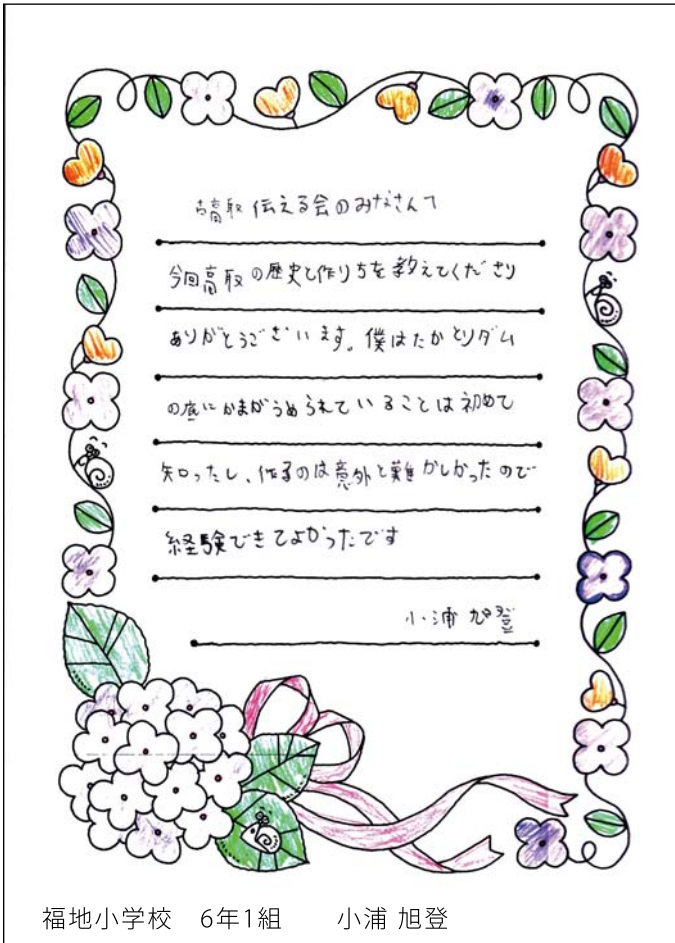 高取伝える会のみなさんへ
今回高取の歴史と作りちを教えてくださり
ありがとうございます。僕はたかとりダム
の底にかまがうめられていることは初めて
知ったし、作るのは意外と難かしかったので
経験できてよかったです
小浦 旭登
福地小学校 6年1組 小浦 旭登